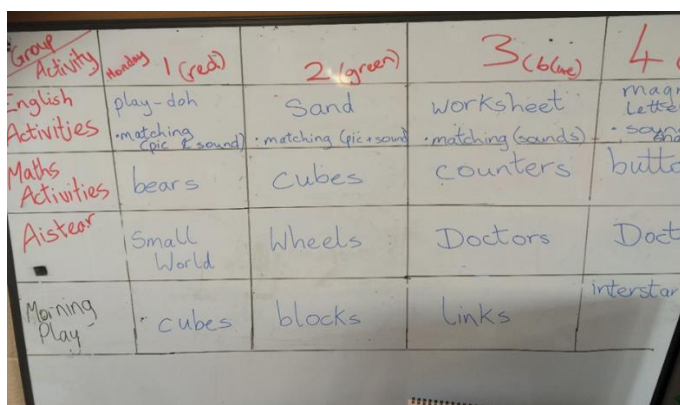 Group
Activity
Monday 1 (red)
2 (green)
3 (blue)
4
English
Activities
play-doh
• matching
(pic & sound)
Sand
• matching (pic + sound
worksheet
• matching (sounds)
Maths
Activities
bears
cubes
counters
Aistear
Small
World
Wheels
Doctors
Morning
Play
cubes
blocks
Links
interstar